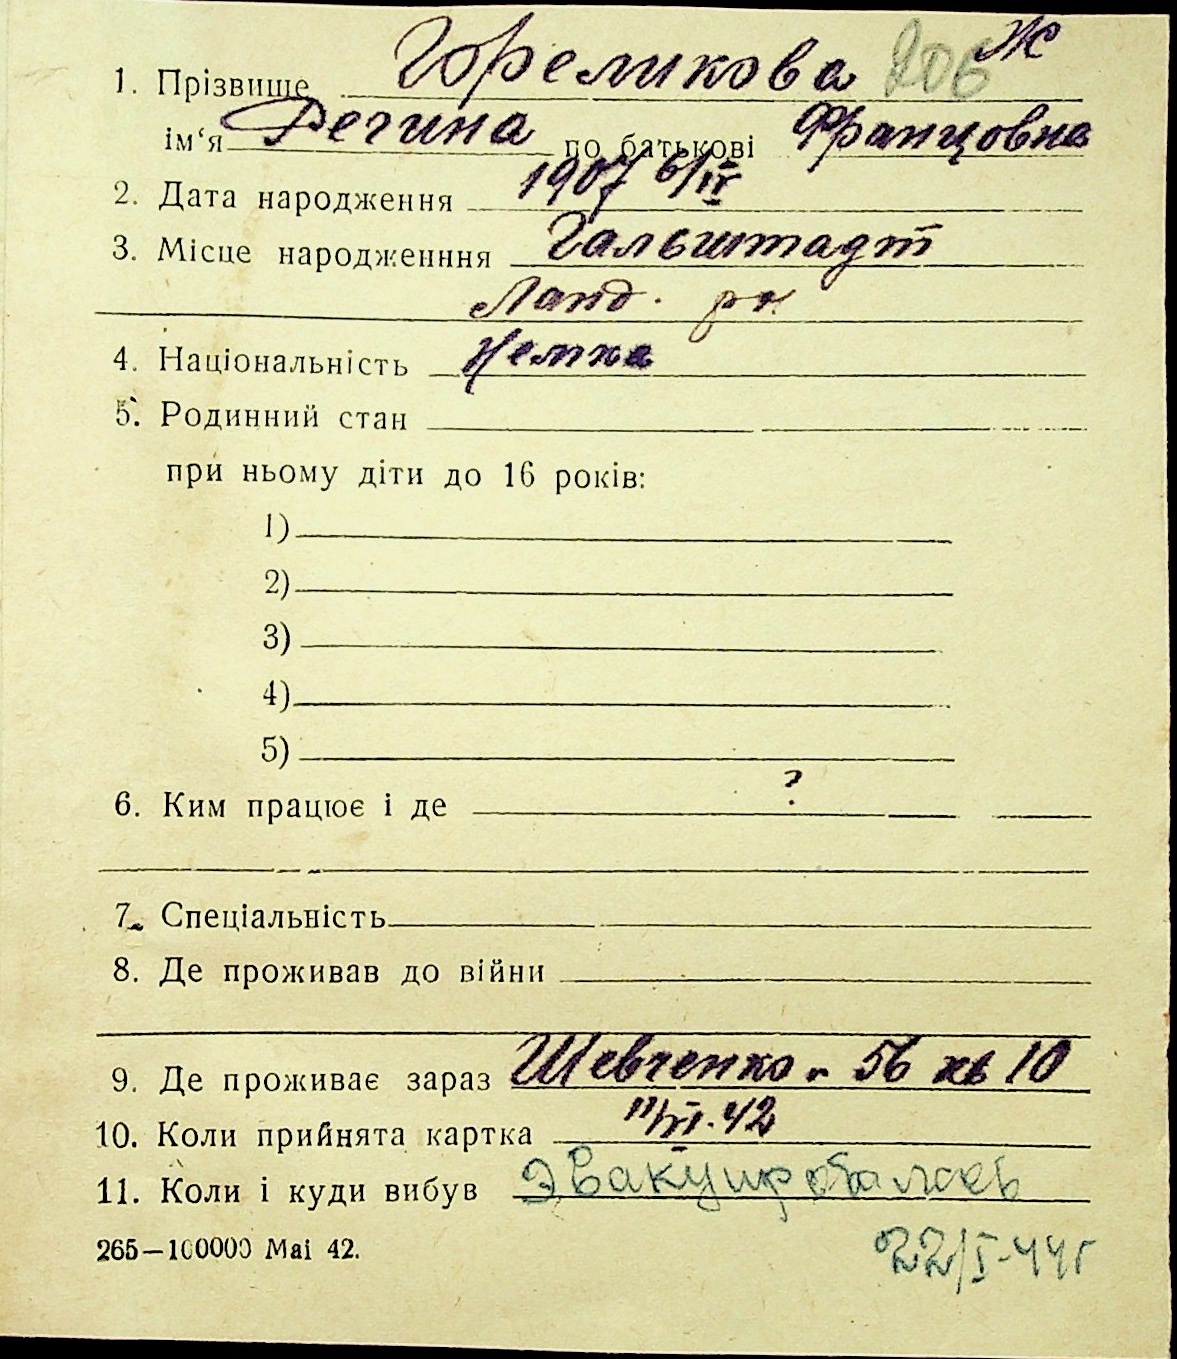 Ж
1. Прізвище Гореликова 206
ім‘я Регина по батькові Францовна
2. Дата народження 1907 6/IV
3. Місце народженння Гальштадт
Ланд. рн.
4. Національність Немка
5. Родинний стан
при ньому діти до 16 років:
1)
2)
3)
4)
5)
6. Ким працює і де ?
7. Спеціальність
8. Де проживав до війни
9. Де проживає зараз Шевченко 56 кв 10
10. Коли прийнята картка 42
11. Коли і куди вибув Эвакуировалась
265—100000 Mai 42.
22/I-44г